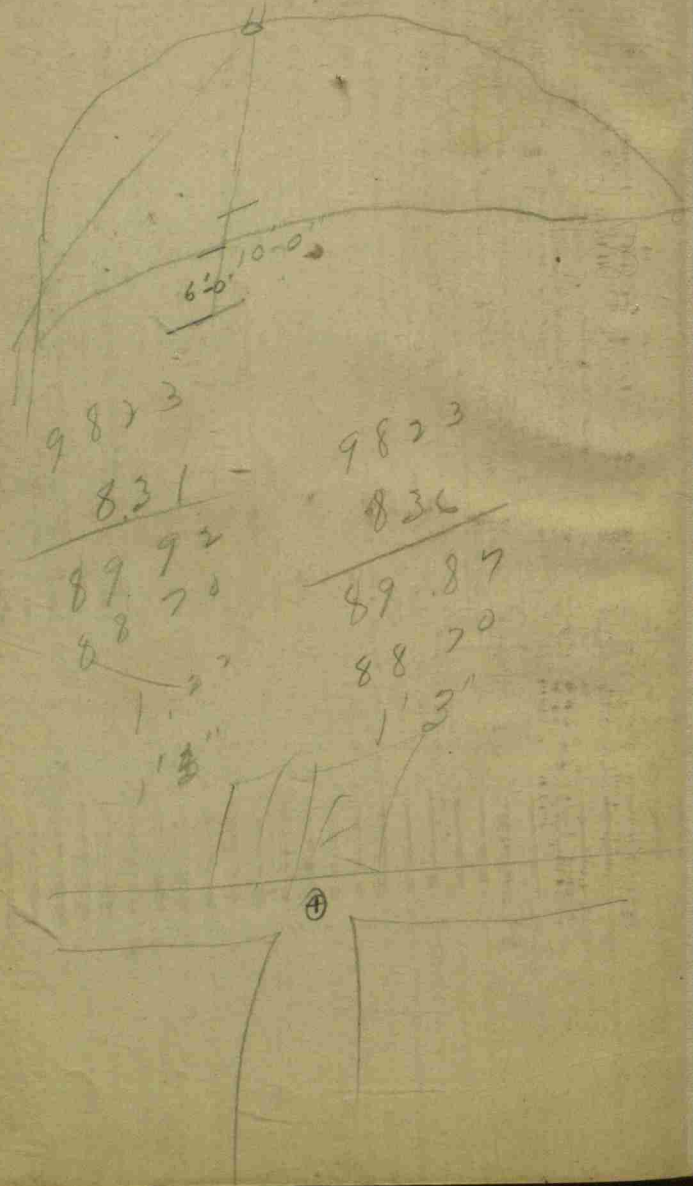 10-0'
6'-0"
9823
8.31
89.92
88 70
1.22
9823
836
89.87
88 70
1' 3"
4